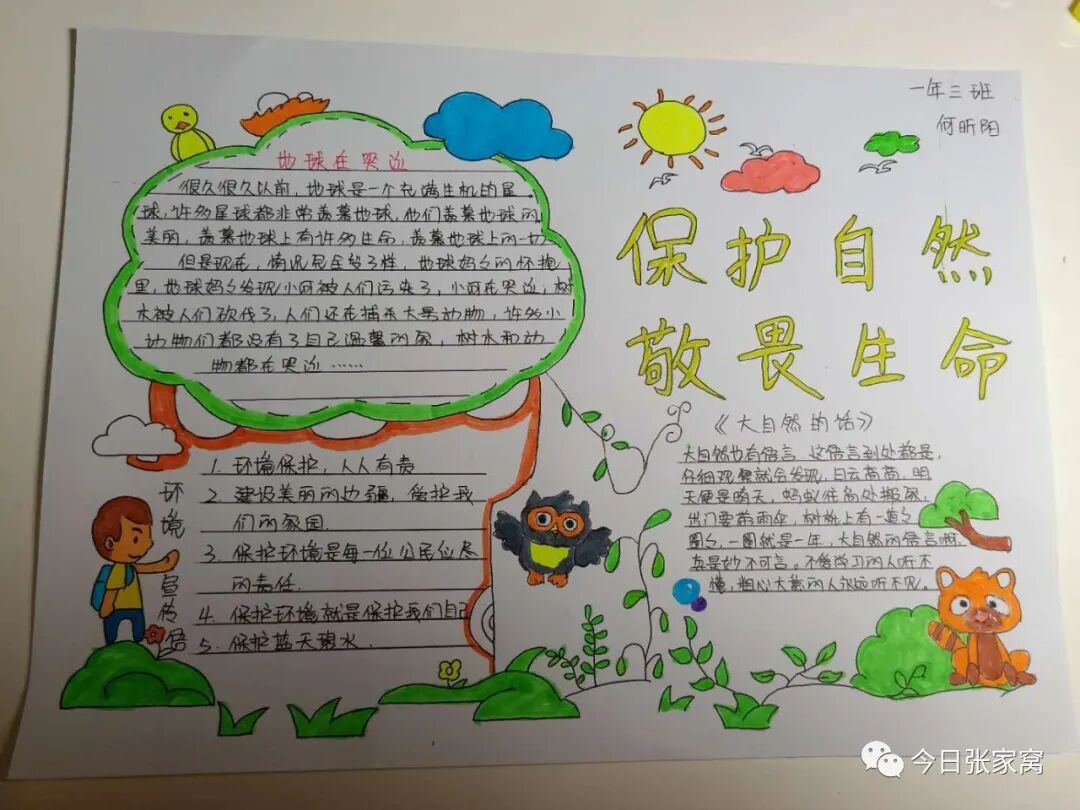 一年三班
何昕阳
保护自然
敬畏生命
地球在哭泣
很久很久以前，地球是一个充满生机的星
球，许多星球都非常羡慕地球，他们羡慕地球的
美丽，羡慕地球上有许多生命，羡慕地球上的一切
但是现在，情况完全变了样，地球妈々的怀抱
里，地球妈々发现小河被人们污染了，小河在哭泣，树
木被人们砍伐了，人们还在捕杀大量动物，许多小
动物们都没有了自己温馨的家，树木和动
物都在哭泣……
环境宣传语
1. 环境保护，人人有责
2. 建设美丽的边疆，保护我
们的家园.
3. 保护环境是每一位公民应尽
的责任.
4. 保护环境就是保护我们自己
5. 保护蓝天碧水.
《大自然的话》
大自然也有语言，这语言到处都是，
仔细观察就会发现，白云高高，明
天便是晴天，蚂蚁往高处搬家，
出门要带雨伞，树桩上有一道々
圈々，一圈就是一年，大自然的语言啊，
真是妙不可言。不爱学习的人听不
懂，粗心大意的人永远听不见。
今日张家窝